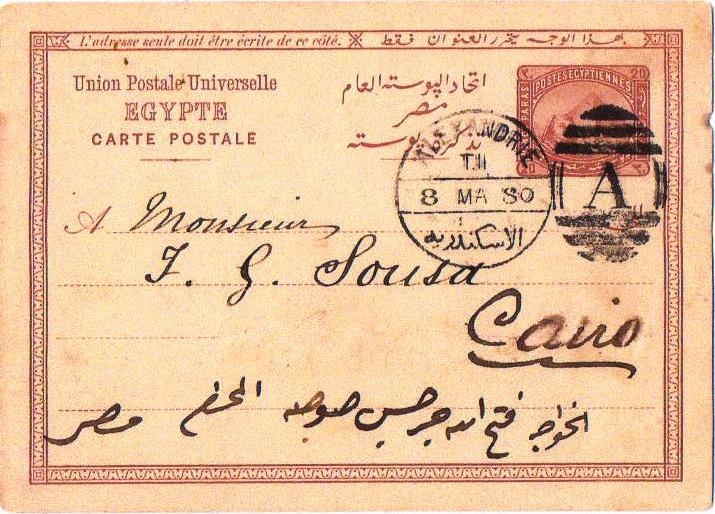 L'adresse seule doit être écrite de ce côté.
بهذا الوجه يتحرر العنوان فقط
Union Postale Universelle
EGYPTE
CARTE POSTALE
اتحاد البوسته العام
مصر
تذكرة بوسته
POSTES EGYPTIENNES
20
PARAS
ALEXANDRIE
TII
8 MA 80
الاسكندرية
A
A Monsieur
F. G. Sousa
Cairo
الخواجه فتح الله جرجس صوصه المحترم مصر